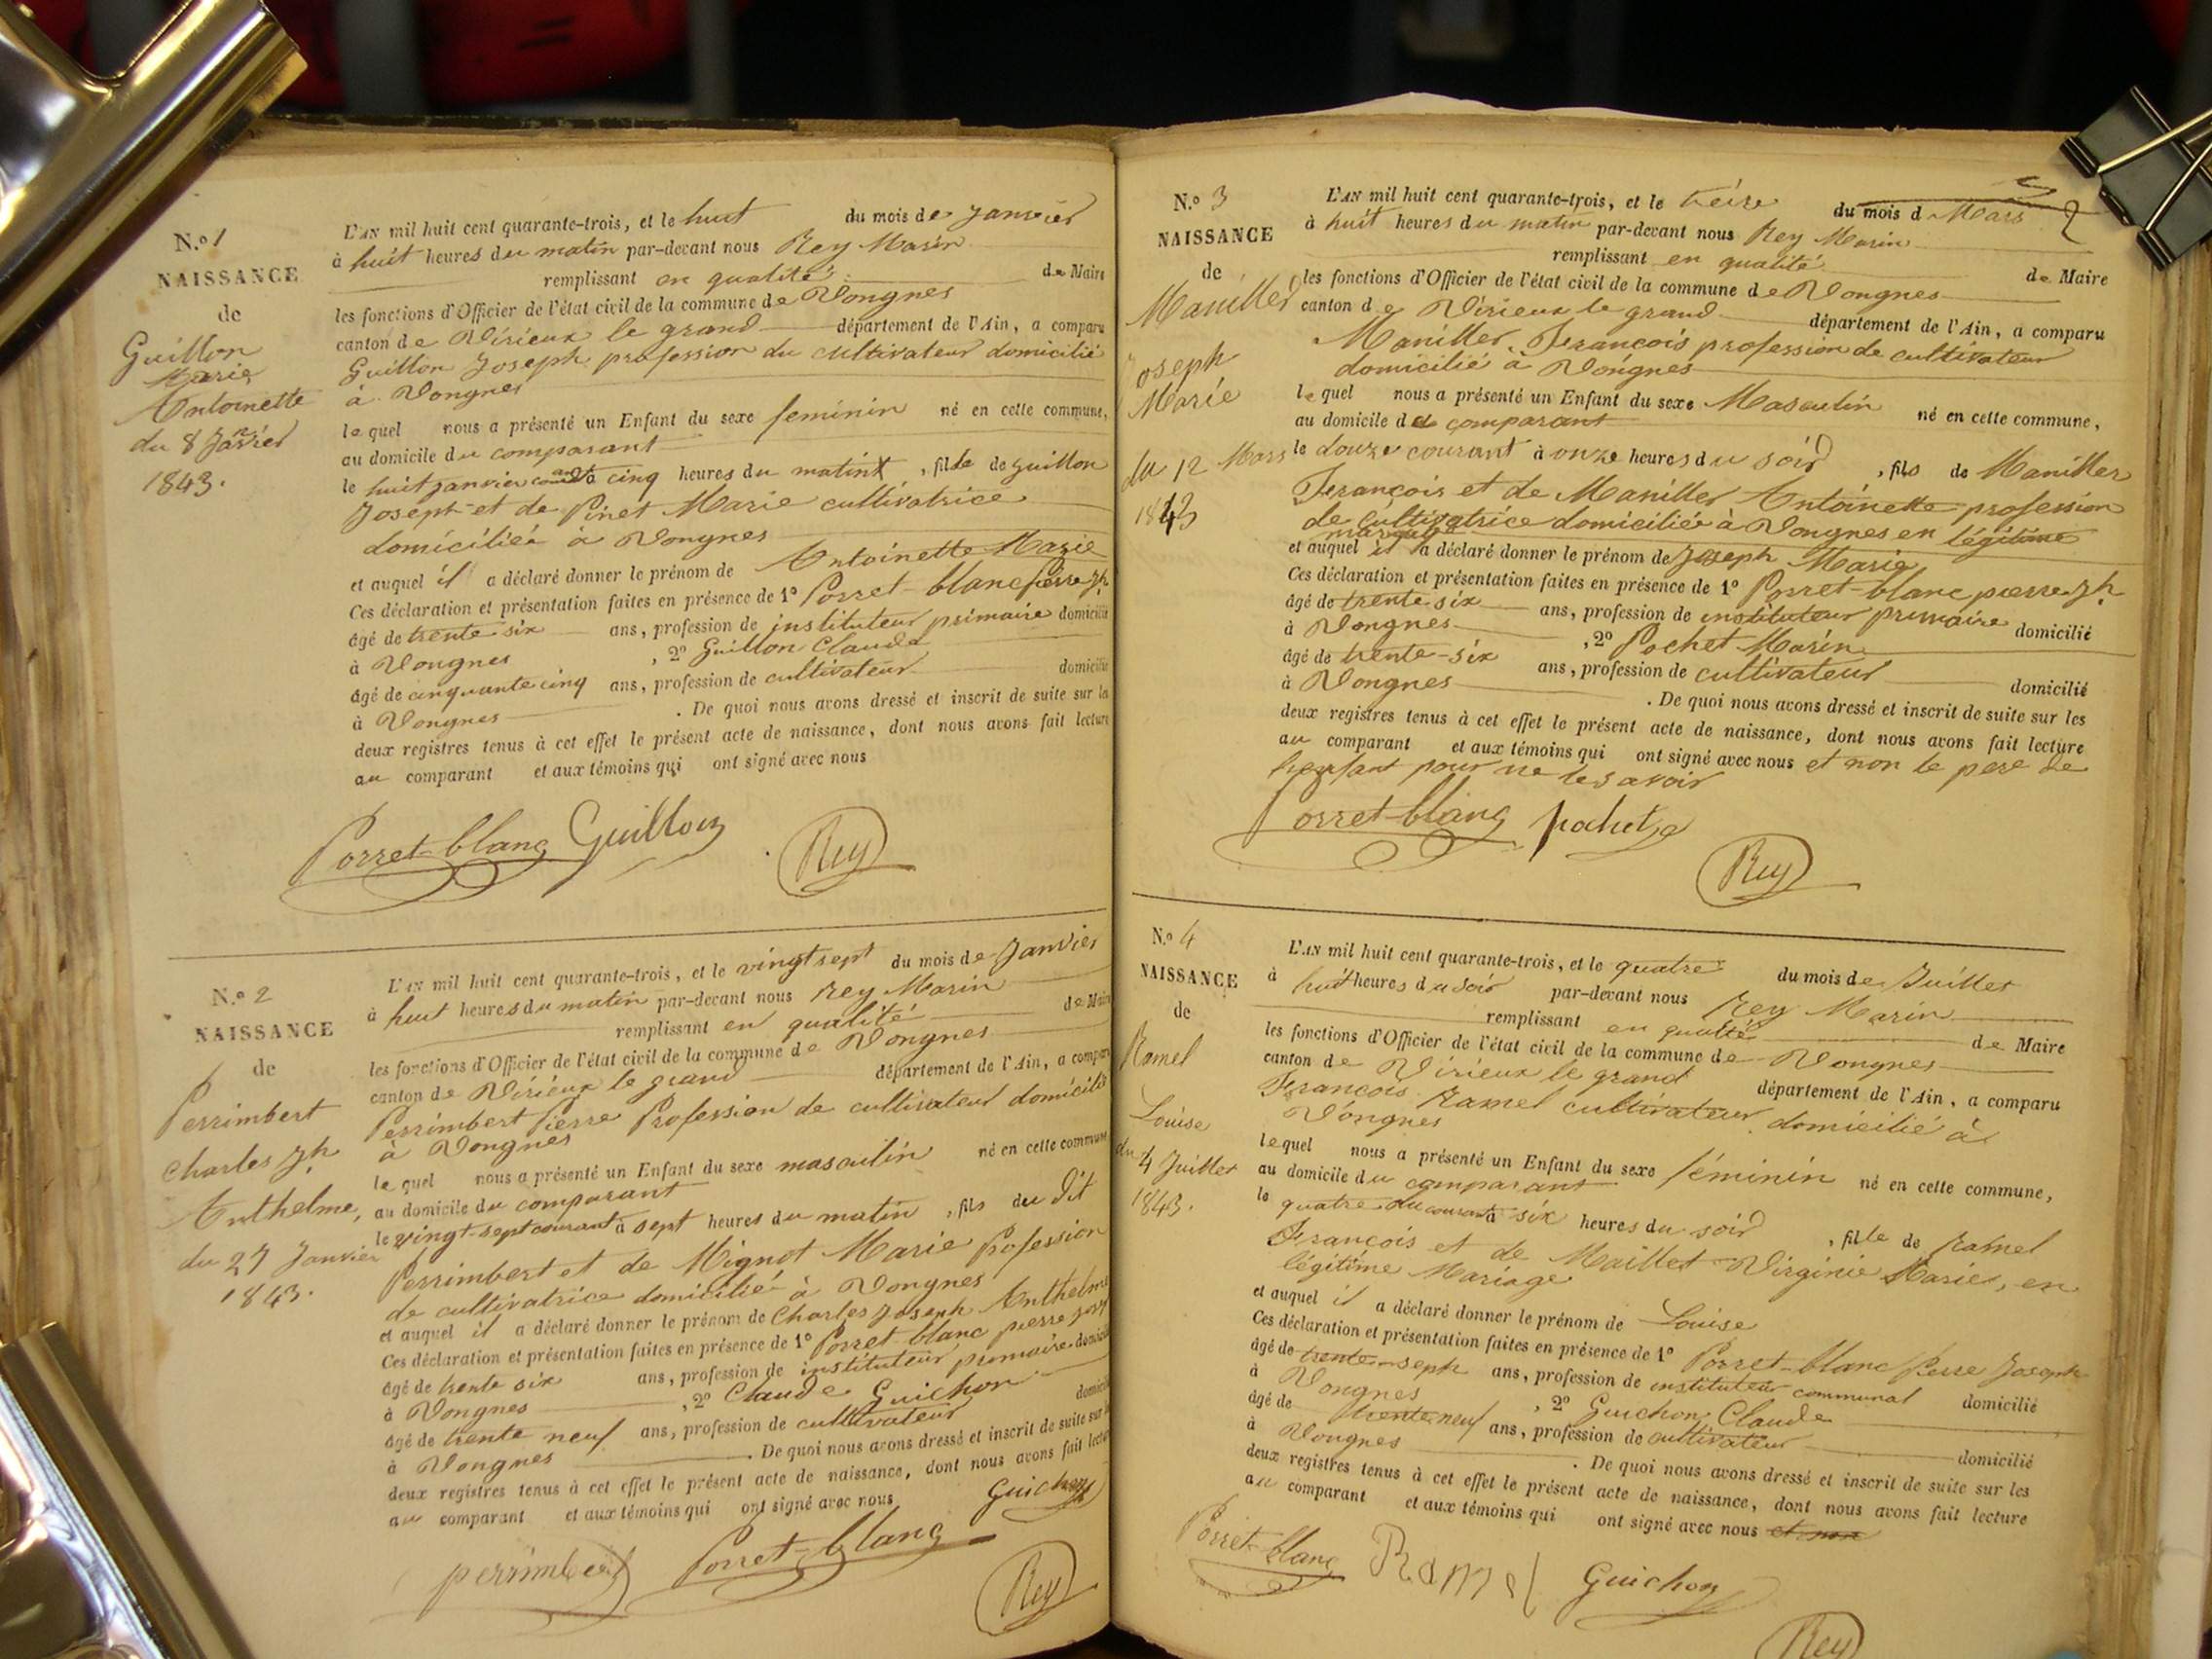 N.o 1
NAISSANCE
de
Guillon
Marie
Antoinette
du 8 Janvier
1843.
L'AN mil huit cent quarante-trois, et le huit du mois de Janvier
à huit heures du matin par-devant nous Rey Marin
remplissant en qualité de Maire
les fonctions d'Officier de l'état civil de la commune de Vongnes
canton de Virieux le grand département de l'Ain, a comparu
Guillon Joseph profession du cultivateur domicilié
à Vongnes
lequel nous a présenté un Enfant du sexe feminin né en cette commune,
au domicile du comparant
le huit janvier courant à cinq heures du matin , fille de Guillon
Joseph et de Pinet Marie cultivatrice
domiciliée à Vongnes
et auquel il a déclaré donner le prénom de Antoinette Marie
Ces déclaration et présentation faites en présence de 1o Porret-blanc pierre jh
âgé de trente six ans, profession de instituteur primaire domicilié
à Vongnes , 2o Guillon Claude
âgé de cinquante cinq ans, profession de cultivateur domicilié
à Vongnes . De quoi nous avons dressé et inscrit de suite sur les
deux registres tenus à cet effet le présent acte de naissance, dont nous avons fait lecture
au comparant et aux témoins qui ont signé avec nous
Porret-blanc Guillon Rey
N.o 2
NAISSANCE
de
Perrimbert
Charles Jh
Anthelme,
du 27 Janvier
1843.
L'AN mil huit cent quarante-trois, et le vingt sept du mois de Janvier
à huit heures du matin par-devant nous Rey Marin
remplissant en qualité de Maire
les fonctions d'Officier de l'état civil de la commune de Vongnes
canton de Virieux le grand département de l'Ain, a comparu
Perrimbert Pierre Profession de cultivateur domicilié
à Vongnes
lequel nous a présenté un Enfant du sexe masculin né en cette commune
au domicile du comparant
le vingt-sept courant à sept heures du matin , fils du dit
Perrimbert et de Mignot Marie Pofession
de cultivatrice domicilié à Vongnes
et auquel il a déclaré donner le prénom de Charles Joseph Anthelme
Ces déclaration et présentation faites en présence de 1o Porret-blanc pierre
âgé de trente six ans, profession de instituteur primaire domicilié
à Vongnes , 2o Claude Guichon
âgé de trente neuf ans, profession de cultivateur domicilié
à Vongnes . De quoi nous avons dressé et inscrit de suite sur
deux registres tenus à cet effet le présent acte de naissance, dont nous avons fait lecture
au comparant et aux témoins qui ont signé avec nous Guichon
perrimbert Porret-blanc Rey
N.o 3
NAISSANCE
de
Maniller
Joseph
Marie
du 12 Mars
1843
2
L'AN mil huit cent quarante-trois, et le treize du mois d Mars
à huit heures du matin par-devant nous Rey Marin
remplissant en qualité de Maire
les fonctions d'Officier de l'état civil de la commune de Vongnes
canton de Virieux le grand département de l'Ain, a comparu
Maniller, François profession de cultivateur
domicilié à Vongnes
lequel nous a présenté un Enfant du sexe Masculin né en cette commune,
au domicile du comparant
le douze courant à onze heures du soir , fils de Maniller
François et de Maniller Antoinette profession
de cultivatrice domiciliée à Vongnes en légitime
mariage
et auquel il a déclaré donner le prénom de Joseph Marie
Ces déclaration et présentation faites en présence de 1o Porret-blanc pierre jh
âgé de trente six ans, profession de instituteur primaire domicilié
à Vongnes , 2o Pochet Marin
âgé de trente-six ans, profession de cultivateur domicilié
à Vongnes . De quoi nous avons dressé et inscrit de suite sur les
deux registres tenus à cet effet le présent acte de naissance, dont nous avons fait lecture
au comparant et aux témoins qui ont signé avec nous et non le pere de
l'enfant pour ne le savoir
Porret-blanc pochet Rey
N.o 4
NAISSANCE
de
Ramel
Louise
du 4 Juillet
1843.
L'AN mil huit cent quarante-trois, et le quatre du mois de Juillet
à huit heures du soir par-devant nous Rey Marin
remplissant en qualité de Maire
les fonctions d'Officier de l'état civil de la commune de Vongnes
canton de Virieux le grand département de l'Ain, a comparu
François Ramel cultivateur domicilié à
Vongnes
lequel nous a présenté un Enfant du sexe féminin né en cette commune,
au domicile du comparant
le quatre du courant à six heures du soir , fille de Ramel
François et de Maillet Virginie Marie, en
légitime Mariage
et auquel il a déclaré donner le prénom de Louise
Ces déclaration et présentation faites en présence de 1o Porret-blanc Pierre Joseph
âgé de trente-seph ans, profession de instituteur communal domicilié
à Vongnes , 2o Guichon Claude
âgé de trente neuf ans, profession de cultivateur domicilié
à Vongnes . De quoi nous avons dressé et inscrit de suite sur les
deux registres tenus à cet effet le présent acte de naissance, dont nous avons fait lecture
au comparant et aux témoins qui ont signé avec nous et non
Porret-blanc Ramel Guichon
Rey